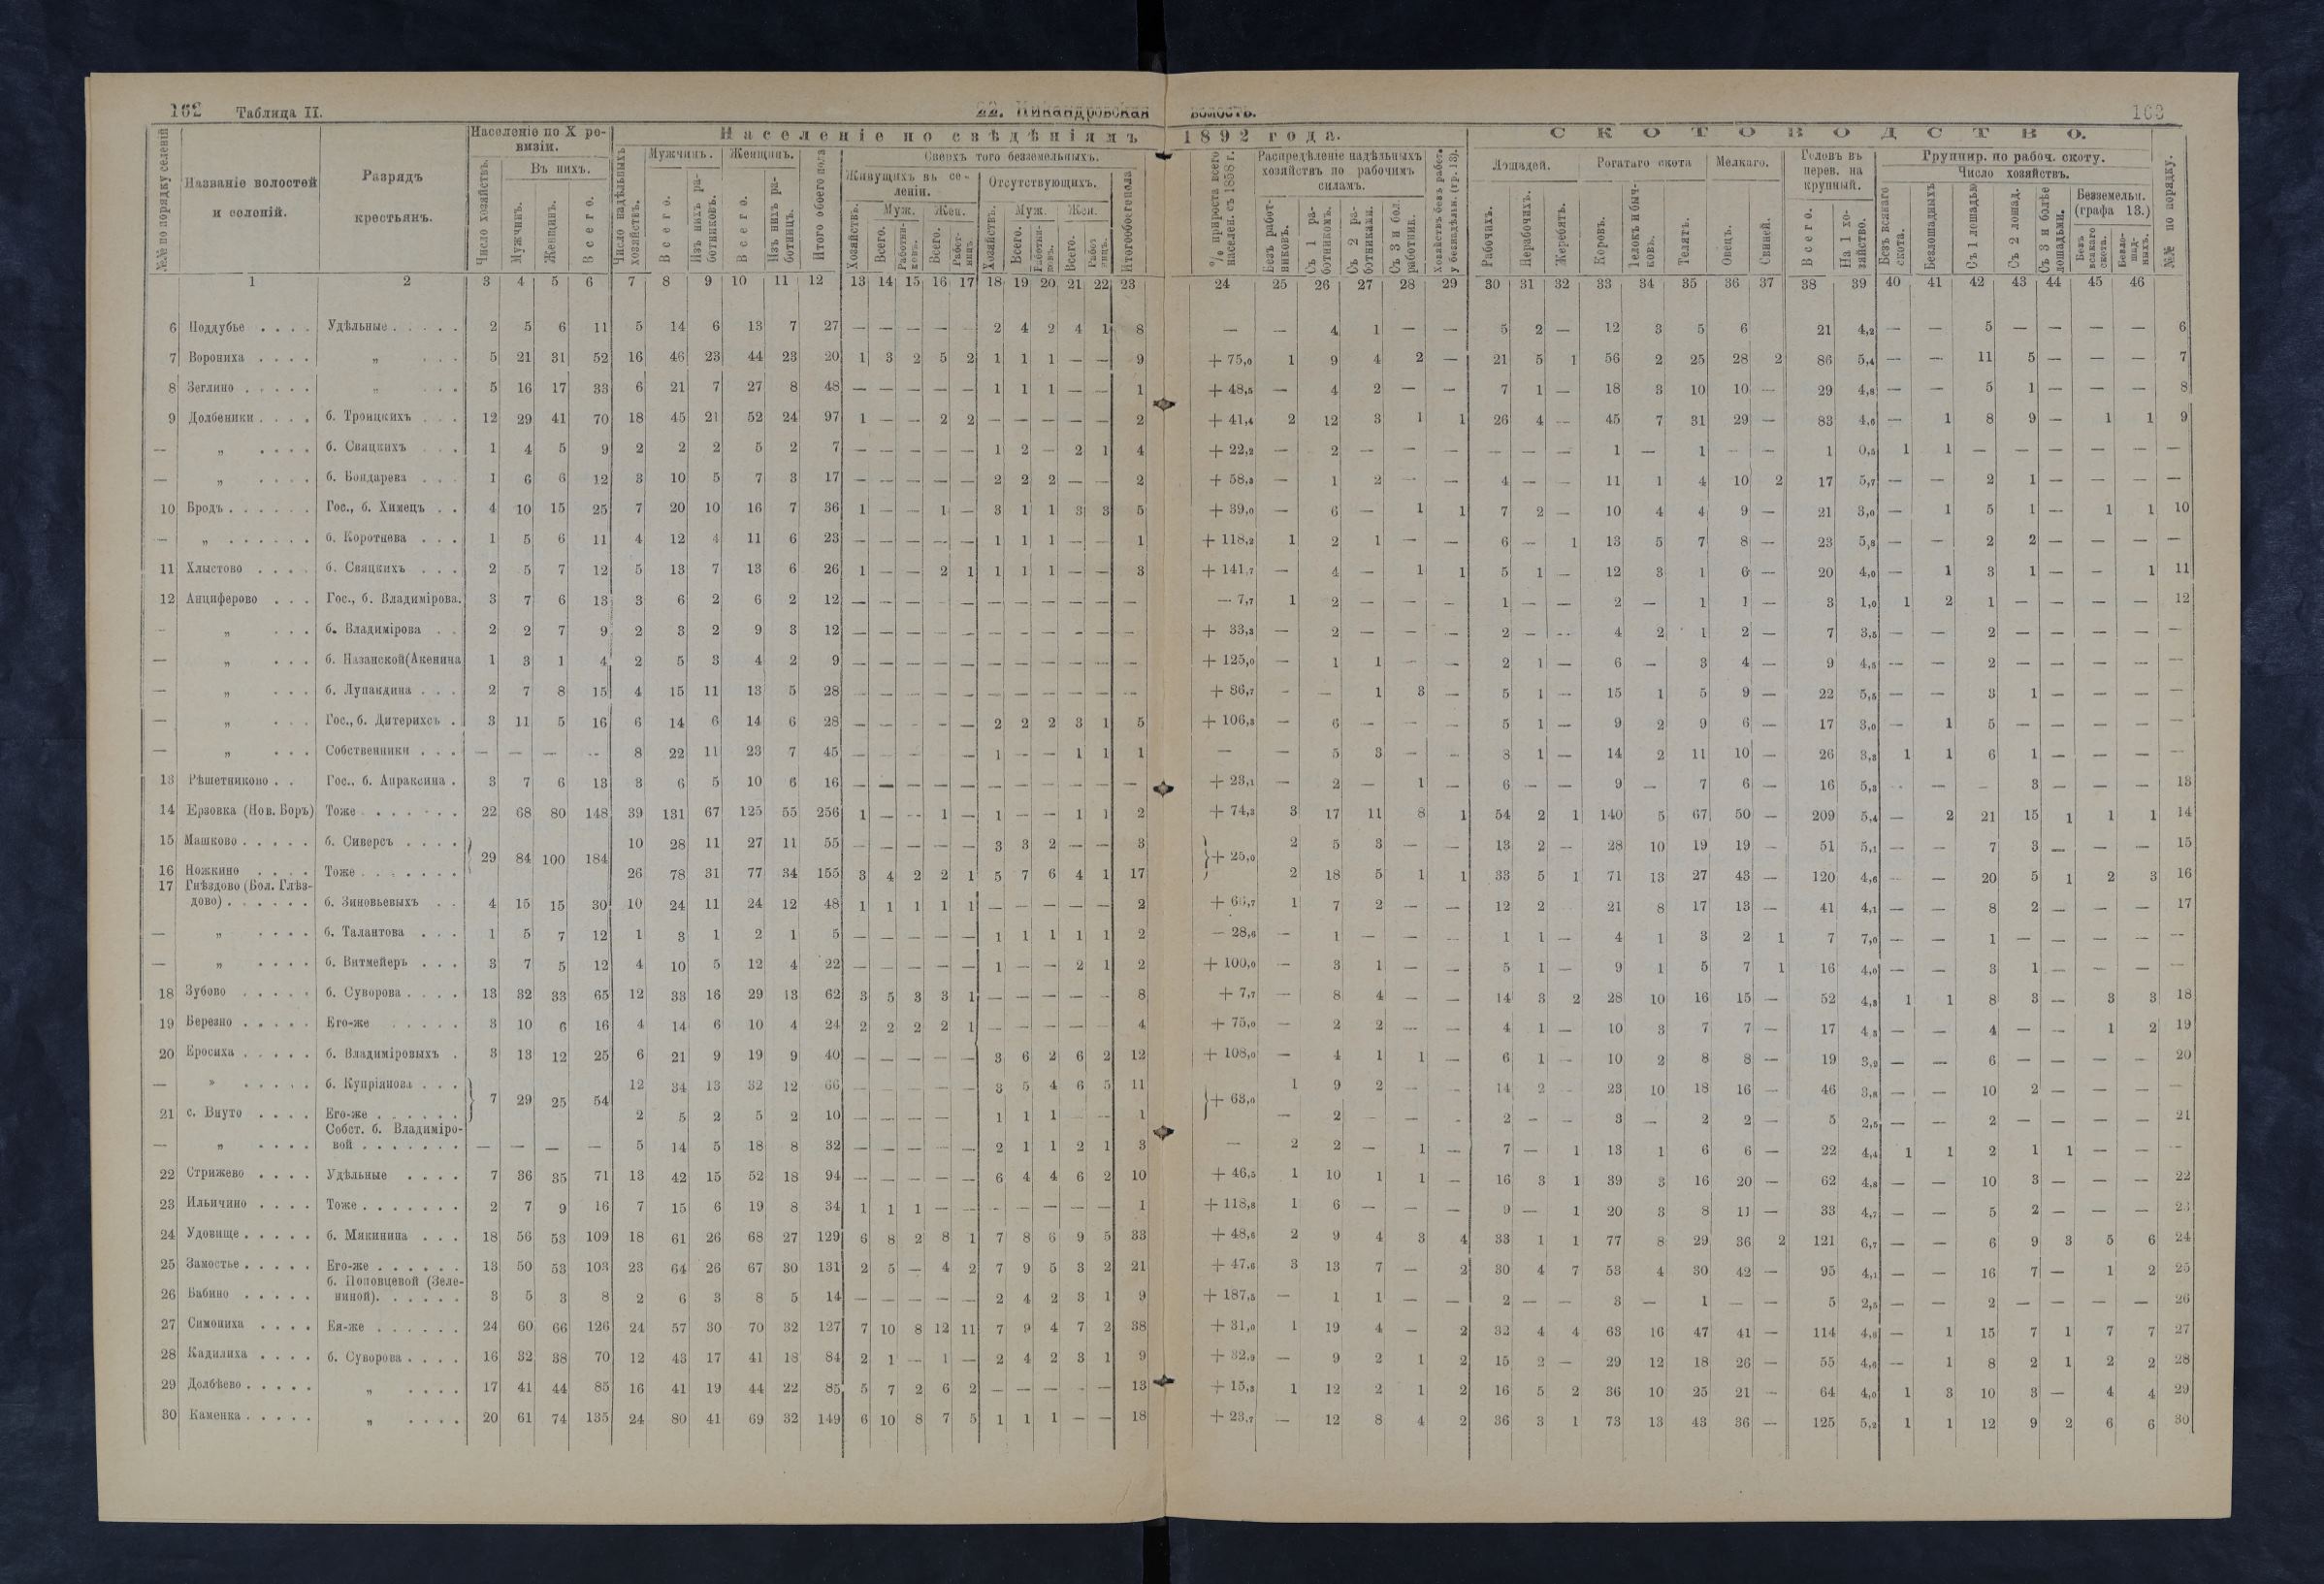 162 Таблица II. 22. Никандровская волость. 163
№№ по порядку селеній
Названіе волостей и селеній.
Разрядъ крестьянъ.
Населеніе по X ревизіи.
Число хозяйствъ.
Въ нихъ.
Мужчинъ. Женщинъ. Всего.
Населеніе по свѣдѣніямъ 1892 года.
Число надѣльныхъ хозяйствъ.
Мужчинъ. Женщинъ.
Всего. Изъ нихъ работниковъ. Всего. Изъ нихъ работницъ. Итого обоего пола
Сверхъ того безземельныхъ.
Живущихъ въ селеніи. Отсутствующихъ.
Хозяйствъ. Муж. Жен. Хозяйствъ. Муж. Жен.
Итого обоего пола
% прироста всего населен. съ 1858 г.
Распредѣленіе надѣльныхъ хозяйствъ по рабочимъ силамъ.
Безъ работниковъ. Съ 1 работникомъ. Съ 2 работниками. Съ 3 и бол. работник.
СКОТОВОДСТВО.
Лошадей. Рогатаго скота Мелкаго.
Рабочихъ. Нерабочихъ. Жеребятъ. Коровъ. Телокъ и бычковъ. Телятъ. Овецъ. Свиней.
Головъ въ перев. на крупный.
Всего. На 1 хозяйство.
Группир. по рабоч. скоту.
Число хозяйствъ.
Безъ всякаго скота. Безлошадныхъ Съ 1 лошадью Съ 2 лошад. Съ 3 и болѣе лошадьми.
Безземельн. (графа 13.)
Безъ всякаго скота. Безлошадныхъ.
№№ по порядку.
1 2 3 4 5 6 7 8 9 10 11 12 13 14 15 16 17 18 19 20 21 22 23 24 25 26 27 28 29 30 31 32 33 34 35 36 37 38 39 40 41 42 43 44 45 46
6 Поддубье . . . . Удѣльные . . . . . 2 5 6 11 5 14 6 13 7 27 — — — — — 2 4 2 4 1 8 — — 4 1 — — 5 2 — 12 3 5 6 21 4,2 — — 5 — — — — 6
7 Ворониха . . . . „ . . . 5 21 31 52 16 46 23 44 23 20 1 3 2 5 2 1 1 1 — — 9 + 75,0 1 9 4 2 — 21 5 1 56 2 25 28 2 86 5,4 — — 11 5 — — — 7
8 Зеглино . . . . . „ . . . 5 16 17 33 6 21 7 27 8 48 — — — — — 1 1 1 — — 1 + 48,5 — 4 2 — — 7 1 — 18 3 10 10 — 29 4,8 — — 5 1 — — — 8
9 Долбеники . . . . б. Троицкихъ . . . 12 29 41 70 18 45 21 52 24 97 1 — — 2 2 — — — — — 2 + 41,4 2 12 3 1 1 26 4 — 45 7 31 29 — 83 4,6 — 1 8 9 — 1 1 9
— „ . . . . б. Свяцкихъ . . . 1 4 5 9 2 2 2 5 2 7 — — — — — 1 2 — 2 1 4 + 22,2 — 2 — — — — — — 1 — 1 — — 1 0,5 1 1 — — — — — —
— „ . . . . б. Бондарева . . . 1 6 6 12 3 10 5 7 3 17 — — — — — 2 2 2 — — 2 + 58,3 — 1 2 — — 4 — — 11 1 4 10 2 17 5,7 — — 2 1 — — — —
10 Бродъ . . . . . . Гос., б. Химецъ . . 4 10 15 25 7 20 10 16 7 36 1 — — 1 — 3 1 1 3 3 5 + 39,0 — 6 — 1 1 7 2 — 10 4 4 9 — 21 3,0 — 1 5 1 — 1 1 10
— „ . . . . . . б. Коротнева . . . 1 5 6 11 4 12 4 11 6 23 — — — — — 1 1 1 — — 1 + 118,2 1 2 1 — — 6 — 1 13 5 7 8 — 23 5,8 — — 2 2 — — — —
11 Хлыстово . . . . б. Свяцкихъ . . . 2 5 7 12 5 13 7 13 6 26 1 — — 2 1 1 1 1 — — 3 + 141,7 — 4 — 1 1 5 1 — 12 3 1 6 — 20 4,0 — 1 3 1 — — 1 11
12 Анциферово . . . Гос., б. Владимірова. 3 7 6 13 3 6 2 6 2 12 — — — — — — — — — — — — 7,7 1 2 — — — 1 — — 2 — 1 1 — 3 1,0 1 2 1 — — — — 12
— „ . . . б. Владимірова . . 2 2 7 9 2 3 2 9 3 12 — — — — — — — — — — — + 33,3 — 2 — — — 2 — — 4 2 1 2 — 7 3,5 — — 2 — — — — —
— „ . . . б. Назанской(Акенина 1 3 1 4 2 5 3 4 2 9 — — — — — — — — — — — + 125,0 — 1 1 — — 2 1 — 6 — 3 4 — 9 4,5 — — 2 — — — — —
— „ . . . б. Лупандина . . . 2 7 8 15 4 15 11 13 5 28 — — — — — — — — — — — + 86,7 — — 1 3 — 5 1 — 15 1 5 9 — 22 5,5 — — 3 1 — — — —
— „ . . . Гос., б. Дитерихсъ . 3 11 5 16 6 14 6 14 6 28 — — — — — 2 2 2 3 1 5 + 106,3 — 6 — — — 5 1 — 9 2 9 6 — 17 3,0 — 1 5 — — — — —
— „ . . . Собственники . . . — — — — 8 22 11 23 7 45 — — — — — 1 — — 1 1 1 — — 5 3 — — 8 1 — 14 2 11 10 — 26 3,3 1 1 6 1 — — — —
13 Рѣшетниково . . Гос.. б. Апраксина . 3 7 6 13 3 6 5 10 6 16 — — — — — — — — — — — + 23,1 — 2 — 1 — 6 — — 9 — 7 6 — 16 5,3 — — — 3 — — — 13
14 Ерзовка (Нов. Боръ) Тоже . . . . . . . 22 68 80 148 39 131 67 125 55 256 1 — — 1 — 1 — — 1 1 2 + 74,3 3 17 11 8 1 54 2 1 140 5 67 50 — 209 5,4 — 2 21 15 1 1 1 14
15 Машково . . . . . б. Сиверсъ . . . . 10 28 11 27 11 55 — — — — — 3 3 2 — — 3 2 5 3 — — 13 2 — 28 10 19 19 — 51 5,1 — — 7 3 — — — 15
29 84 100 184 } + 25,0
16 Ножкино . . . . Тоже . . . . . . . 26 78 31 77 34 155 3 4 2 2 1 5 7 6 4 1 17 2 18 5 1 1 33 5 1 71 13 27 43 — 120 4,6 — — 20 5 1 2 3 16
17 Гнѣздово (Бол. Глѣз-
дово) . . . . . . б. Зиновьевыхъ . . 4 15 15 30 10 24 11 24 12 48 1 1 1 1 1 — — — — — 2 1 7 2 — — 12 2 21 8 17 13 — 41 4,1 — — 8 2 — — — 17
— „ . . . . б. Талантова . . . 1 5 7 12 1 3 1 2 1 5 — — — — — 1 1 1 1 1 2 — 28,6 — 1 — — — 1 1 — 4 1 3 2 1 7 7,0 — — 1 — — — — —
— „ . . . . б. Витмейеръ . . . 3 7 5 12 4 10 5 12 4 22 — — — — — 1 — — 2 1 2 + 100,0 — 3 1 — — 5 1 — 9 1 5 7 1 16 4,0 — — 3 1 — — — —
18 Зубово . . . . . б. Суворова . . . . 13 32 33 65 12 33 16 29 13 62 3 5 3 3 1 — — — — — 8 + 7,7 — 8 4 — — 14 3 2 28 10 16 15 — 52 4,3 1 1 8 3 — 3 3 18
19 Березно . . . . . Его-же . . . . . 3 10 6 16 4 14 6 10 4 24 2 2 2 2 1 — — — — — 4 + 75,0 — 2 2 — — 4 1 — 10 3 7 7 — 17 4,3 — — 4 — — 1 2 19
20 Еросиха . . . . . б. Владиміровыхъ . 3 13 12 25 6 21 9 19 9 40 — — — — — 3 6 2 6 2 12 + 108,0 — 4 1 1 — 6 1 — 10 2 8 8 — 19 3,2 — — 6 — — — — 20
— „ . . . . . б. Купріянова . . . 12 34 13 32 12 66 — — — — — 3 5 4 6 5 11 1 9 2 — — 14 2 — 23 10 18 16 — 46 3,8 — — 10 2 — — — —
} 7 29 25 54 } + 63,0
21 с. Внуто . . . . Его-же . . . . . . 2 5 2 5 2 10 — — — — — 1 1 1 — — 1 — 2 — — — 2 — — 3 — 2 2 — 5 2,5 — — 2 — — — — 21
Собст. б. Владиміро-
— „ . . . . вой . . . . . . . — — — — 5 14 5 18 8 32 — — — — — 2 1 1 2 1 3 — 2 2 — 1 — 7 — 1 13 1 6 6 — 22 4,4 1 1 2 1 1 — — —
22 Стрижево . . . . Удѣльные . . . . 7 36 35 71 13 42 15 52 18 94 — — — — — 6 4 4 6 2 10 + 46,5 1 10 1 1 — 16 3 1 39 3 16 20 — 62 4,8 — — 10 3 — — — 22
23 Ильичино . . . . Тоже . . . . . . . 2 7 9 16 7 15 6 19 8 34 1 1 1 — — — — — — — 1 + 118,8 1 6 — — — 9 — 1 20 3 8 11 — 33 4,7 — — 5 2 — — — 23
24 Удовище . . . . . б. Мякинина . . . 18 56 53 109 18 61 26 68 27 129 6 8 2 8 1 7 8 6 9 5 33 + 48,6 2 9 4 3 4 33 1 1 77 8 29 36 2 121 6,7 — — 6 9 3 5 6 24
25 Замостье . . . . . Его-же . . . . . . 13 50 53 103 23 64 26 67 30 131 2 5 — 4 2 7 9 5 3 2 21 + 47,6 3 13 7 — 2 30 4 7 53 4 30 42 — 95 4,1 — — 16 7 — 1 2 25
б. Поповцевой (Зеле-
26 Бабино . . . . . ниной). . . . . . 3 5 3 8 2 6 3 8 5 14 — — — — — 2 4 2 3 1 9 + 187,5 — 1 1 — — 2 — — 3 — 1 — — 5 2,5 — — 2 — — — — 26
27 Симониха . . . . Ея-же . . . . . . 24 60 66 126 24 57 30 70 32 127 7 10 8 12 11 7 9 4 7 2 38 + 31,0 1 19 4 — 2 32 4 4 63 16 47 41 — 114 4,8 — 1 15 7 1 7 7 27
28 Кадилиха . . . . б. Суворова . . . . 16 32 38 70 12 43 17 41 18 84 2 1 — 1 — 2 4 2 3 1 9 + 32,9 — 9 2 1 2 15 2 — 29 12 18 26 — 55 4,6 — 1 8 2 1 2 2 28
29 Долбѣево . . . . . „ . . . . 17 41 44 85 16 41 19 44 22 85 5 7 2 6 2 — — — — — 13 + 15,3 1 12 2 1 2 16 5 2 36 10 25 21 — 64 4,0 1 3 10 3 — 4 4 29
30 Каменка . . . . . „ . . . . 20 61 74 135 24 80 41 69 32 149 6 10 8 7 5 1 1 1 — — 18 + 23,7 — 12 8 4 2 36 3 1 73 13 43 36 — 125 5,2 1 1 12 9 2 6 6 30